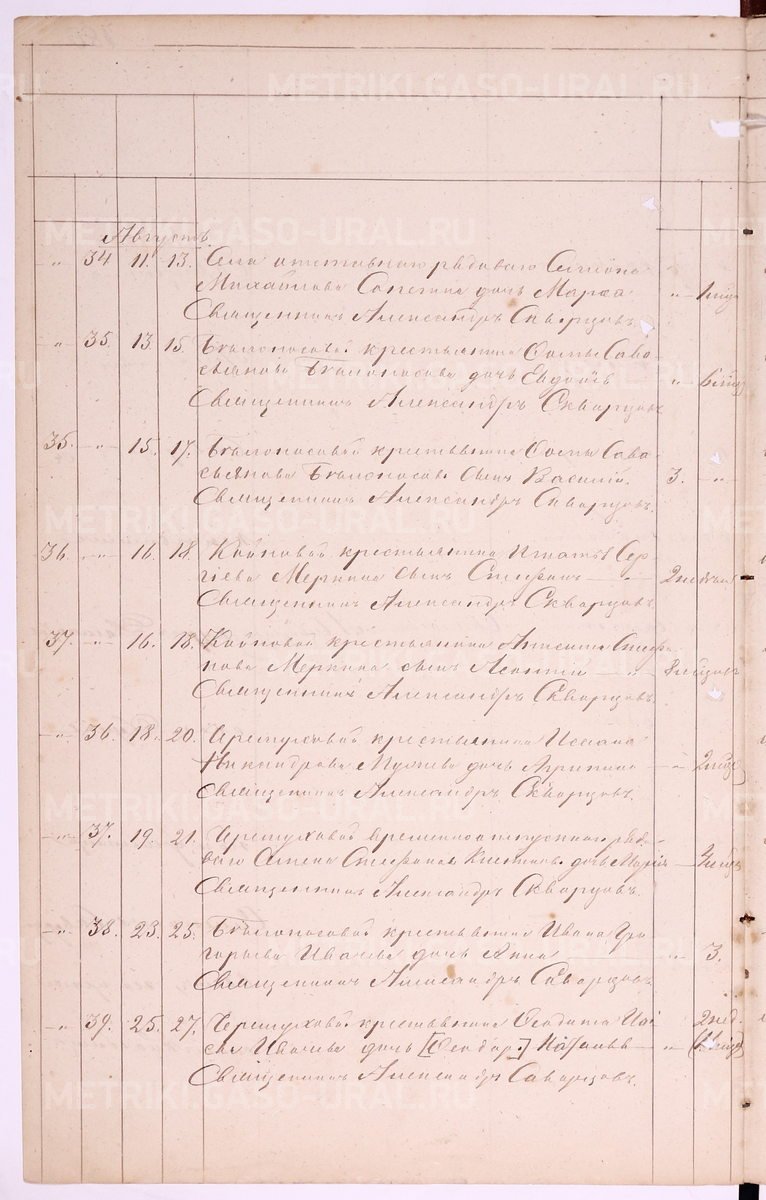 Августъ
" 34 11. 13. Села отставнаго рядоваго Семена
Михайлова дочь Марѳа " 1
Священникъ Александръ Скварцовъ.
" 35. 13. 15. Бѣлоносовой крестьянина Ѳомы Сава-
стьянова Бѣлоносова дочь Евдокія "
Священникъ Александръ Скварцовъ
35. " 15. 17. Бѣлоносовой крестьянина Ѳомы Сава-
стьянова Бѣлоносова сынъ Василій. 3. "
Священникъ Александръ Скварцовъ.
36. " 16. 18. крестьянина Игнатія Сер-
гіева Меркина сынъ Стефанъ " 2
Священникъ Александръ Скварцовъ.
37. " 16. 18. крестьянина Стефа-
нова Меркина сынъ Леонтій " 8
Священникъ Александръ Скварцовъ
" 36. 18. 20. крестьянина
Никандрова дочь Агрипина " 2
Священникъ Александръ Скварцовъ.
" 37. 19. 21. Черемуховой временноотпускнаго рядо-
ваго Семена Стефанова дочь Марія
Священникъ Александръ Скварцовъ.
" 38. 23. 25. Бѣлоносовой крестьянина Ивана Гри-
горьева Ивачева дочь Анна " 3.
Священникъ Александръ Скварцовъ.
" 39. 25. 27. Черемуховой крестьянина 2 нед.
Ивачева дочь [Ѳеодор.] Наталья "
Священникъ Александръ Скварцовъ.
METRIKI.GASO-URAL.RU